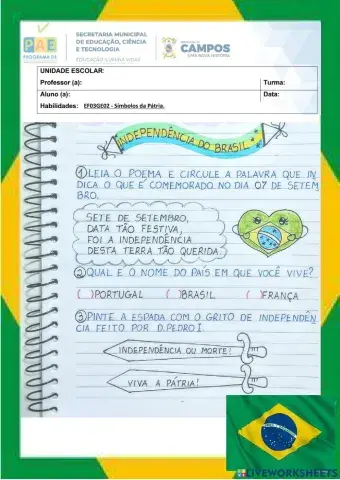 SECRETARIA MUNICIPAL
DE EDUCAÇÃO, CIÊNCIA
E TECNOLOGIA
PAE
CAMPOS
UNIDADE ESCOLAR:
Professor (a):
Turma:
Aluno (a):
Data:
Habilidades: EF03GE02 - Símbolos da Pátria.
INDEPENDÊNCIA DO BRASIL
1 LEIA O POEMA E CIRCULE A PALAVRA QUE IN
DICA O QUE É COMEMORADO NO DIA 07 DE SETEM
BRO.
SETE DE SETEMBRO,
DATA TÃO FESTIVA,
FOI A INDEPENDÊNCIA
DESTA TERRA TÃO QUERIDA.
2 QUAL E O NOME DO PAÍS EM QUE VOCÊ VIVE?
( ) PORTUGAL ( ) BRASIL ( ) FRANÇA
3 PINTE A ESPADA COM O GRITO DE INDEPENDÊN
CIA FEITO POR D.PEDRO I.
INDEPENDÊNCIA OU MORTE!
VIVA A PÁTRIA!
LIVEWORKSHEETS